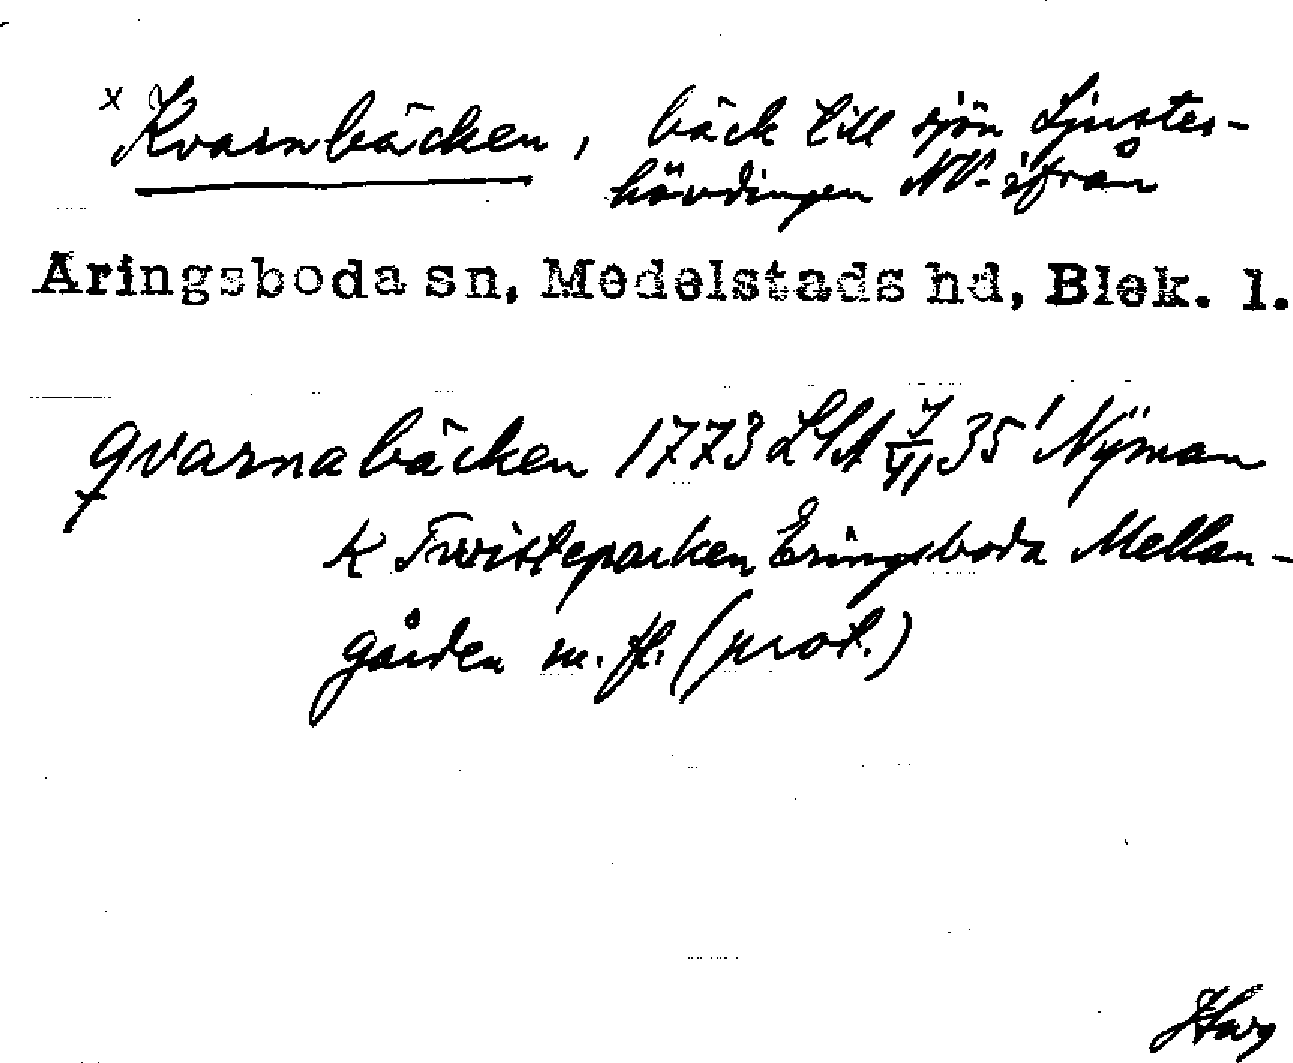 x Kvarnbäcken, bäck till sjön Ljuster-
hövdingen NV. ifrån
Aringsboda sn, Medelstads hd, Blek. l.
qvarnabäcken 1773 LSA 35' Nyman
K Twisteparken Eringsboda Mellan-
gården m. fl. (prot.)